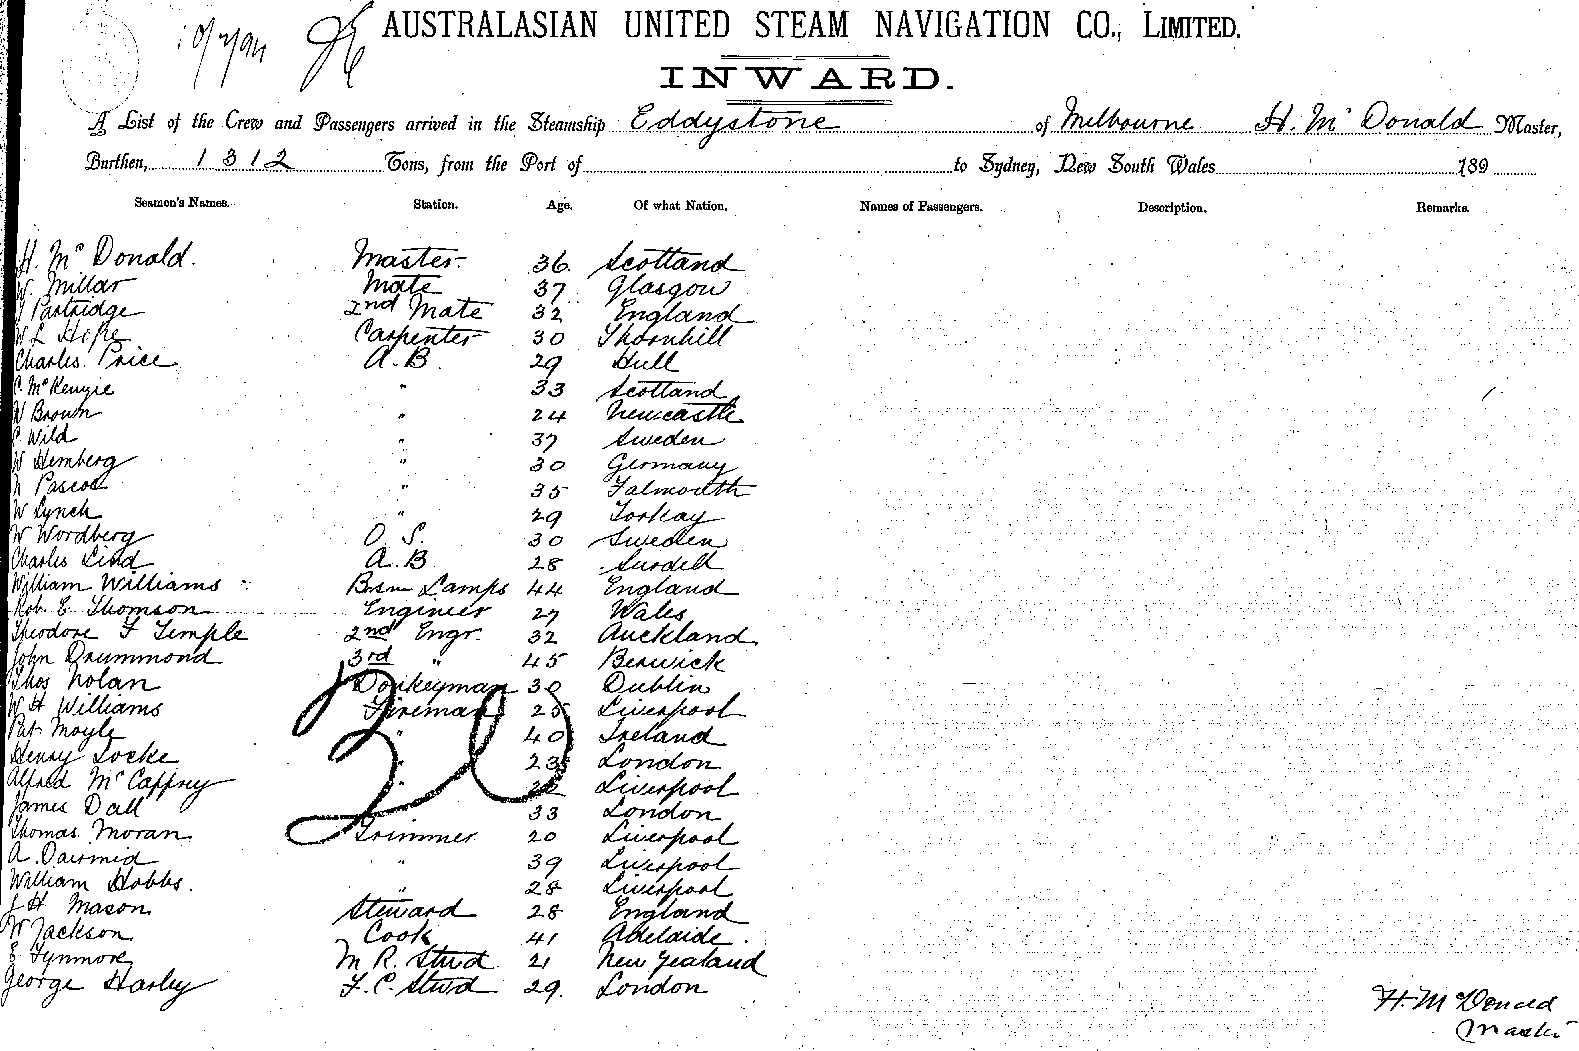 AUSTRALASIAN UNITED STEAM NAVIGATION CO., LIMITED.
INWARD.
A List of the Crew and Passengers arrived in the Steamship Eddystone of Melbourne H. Mc Donald Master,
Burthen, 1312 Tons, from the Port of to Sydney, New South Wales 189
Seamen's Names. Station. Age. Of what Nation. Names of Passengers. Description. Remarks.
H. Mc Donald. Master 36. Scotland
W. Millar Mate 37 Glasgow
Partridge 2nd Mate 32 England
W L Hope Carpenter 30 Thornhill
Charles Price A.B. 29 Hull
C. McKenzie " 33 Scotland
W Brown " 24 Newcastle
C. Wild " 37 Sweden
W Hemberg " 30 Germany
N Pascoe " 35 Falmouth
W Lynch " 29 Torkay
W Wordberg O. S. 30 Sweden
Charles Lind A.B 28
William Williams Bsn Lamps 44 England
Rob. E Thomson Engineer 27 Wales
Theodore F Temple 2nd Engr. 32 Auckland
John Drummond 3rd " 45 Berwick
Thos Nolan Donkeyman 30 Dublin
W H Williams Fireman 25 Liverpool
Pat Moyle " 40 Ireland
Henry Locke " 23 London
Alfred Mc Caffrey " 22 Liverpool
James Dall 33 London
Thomas Moran Trimmer 20 Liverpool
A. Dairmid " 39 Liverpool
William Hobbs. " 28 Liverpool
J H Mason Steward 28 England
W Jackson Cook 41 Adelaide.
E Fynmore M R. Stwd 21 New Zealand
George Harley F.C. Stwd 29. London
H. McDonald
Master